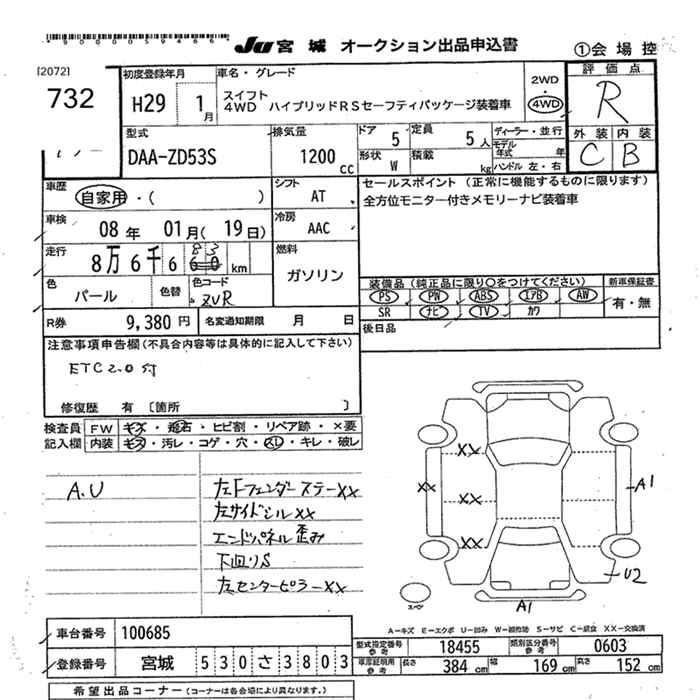 *9000059466*
JU 宮城 オークション出品申込書
①会場控
[2072]
732
初度登録年月
H29 1月
車名・グレード
スイフト
4WD ハイブリッドRSセーフティパッケージ装着車
2WD
・
4WD
評価点
R
外装 内装
C B
型式
DAA-ZD53S
排気量
1200 cc
ドア 5
定員 5人
形状 W
積載 kg
ディーラー・並行
モデル年式 年
ハンドル 左・右
車歴
自家用・( )
シフト
AT
セールスポイント (正常に機能するものに限ります)
全方位モニター付きメモリーナビ装着車
車検
08年 01月(19日)
冷房
AAC
走行
8万6千6 83 60 km
燃料
ガソリン
色
パール
色替
色コード
ZVR
装備品(純正品に限り○をつけてください)
新車保証書
PS PW ABS エアB AW
有・無
SR ナビ TV カワ
後日品
R券 9,380円
名変通知期限 月 日
注意事項申告欄(不具合内容等は具体的に記入して下さい)
ETC2.0付
修復歴 有 〔箇所 〕
検査員
記入欄
FW キズ・飛石・ヒビ割・リペア跡・×要
内装 キズ・汚レ・コゲ・穴・スレ・キレ・破レ
A.U
左Fフェンダーステー XX
左サイドシル XX
エンドパネル歪み
下回りS
左センターピラー XX
XX
XX
XX
XX
A1
U2
A1
スペア
A−キズ E−エクボ U−凹み W−補修跡 S−サビ C−腐食 XX−交換済
車台番号 100685
型式指定番号 参考 18455
類別区分番号 参考 0603
登録番号 宮城 530 さ 3803
車庫証明用 参考 長さ 384cm 幅 169cm 高さ 152cm
希望出品コーナー(コーナーは各会場により異なります。)